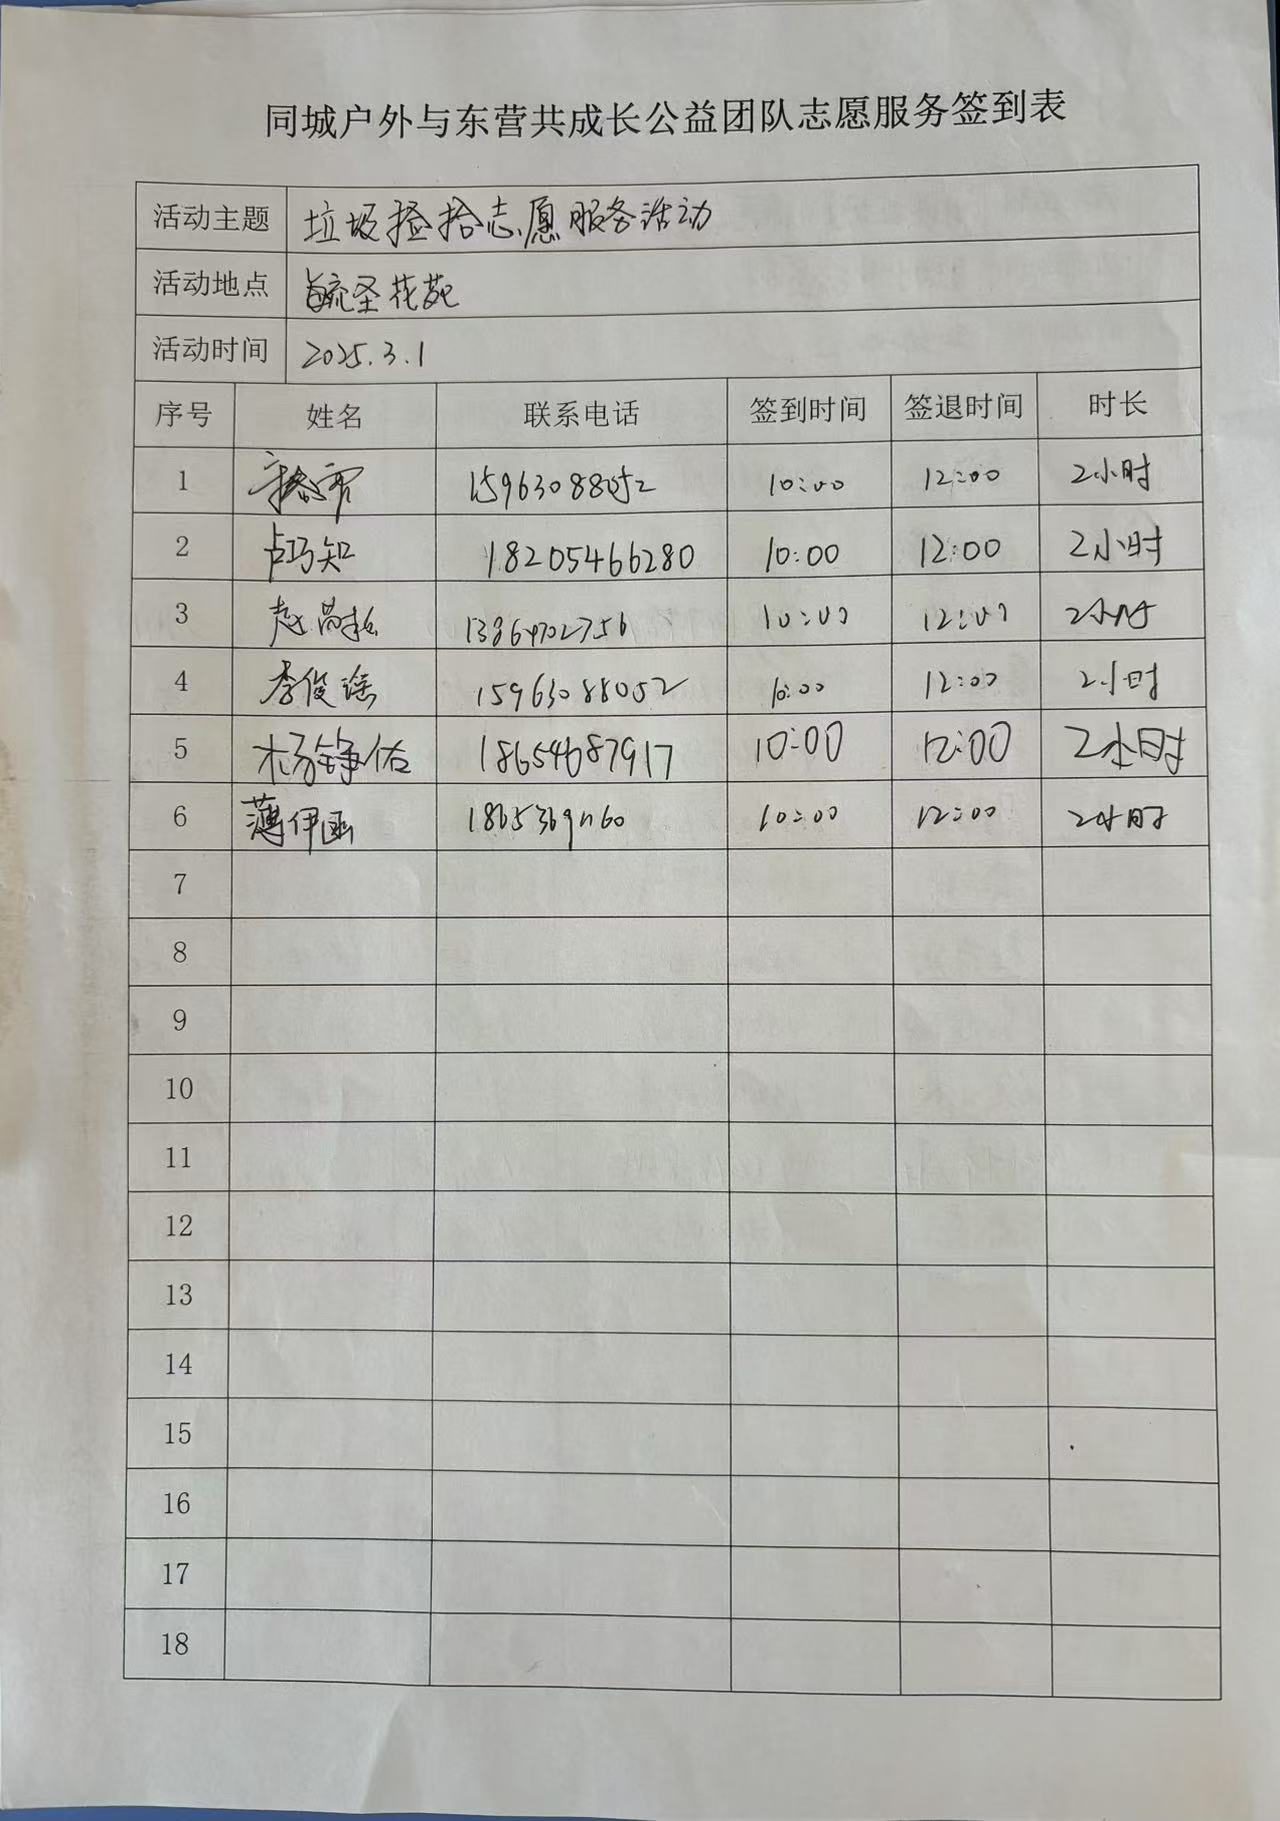 同城户外与东营共成长公益团队志愿服务签到表
活动主题 垃圾捡拾志愿服务活动
活动地点 毓圣花苑
活动时间 2025.3.1
序号 姓名 联系电话 签到时间 签退时间 时长
1 15963088052 10:00 12:00 2小时
2 卢巧知 18205466280 10:00 12:00 2小时
3 赵 10:00 12:00 2小时
4 李俊谣 15963088052 10:00 12:00 2小时
5 杨铮佑 18654687917 10:00 12:00 2小时
6 薄伊函 10:00 12:00 2小时
7
8
9
10
11
12
13
14
15
16
17
18